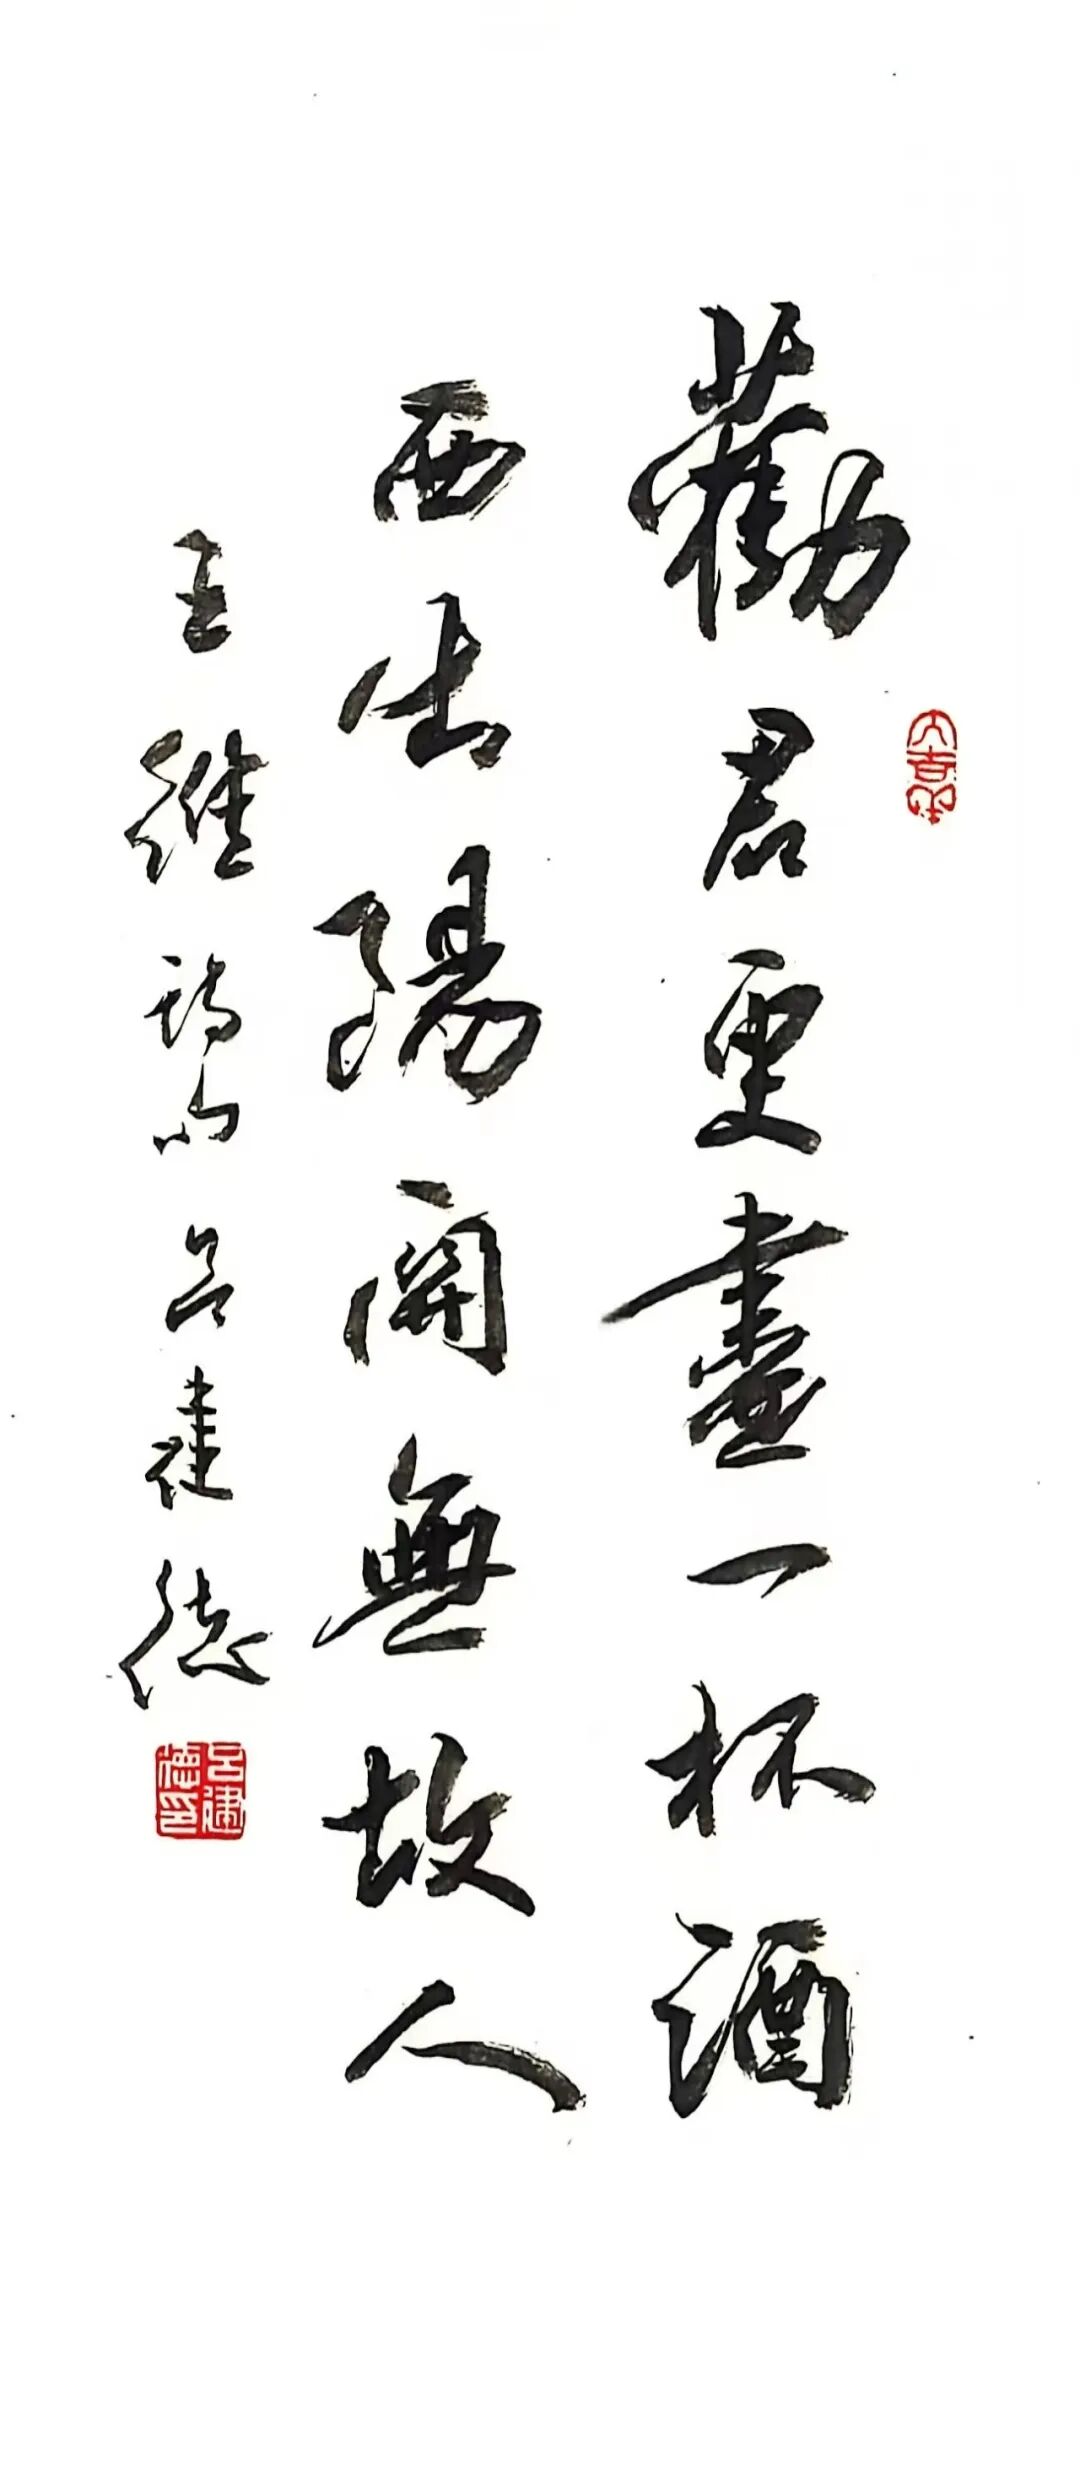 勸君更盡一杯酒
西出陽關無故人
王維詩句 呂建德
大吉
呂建德印